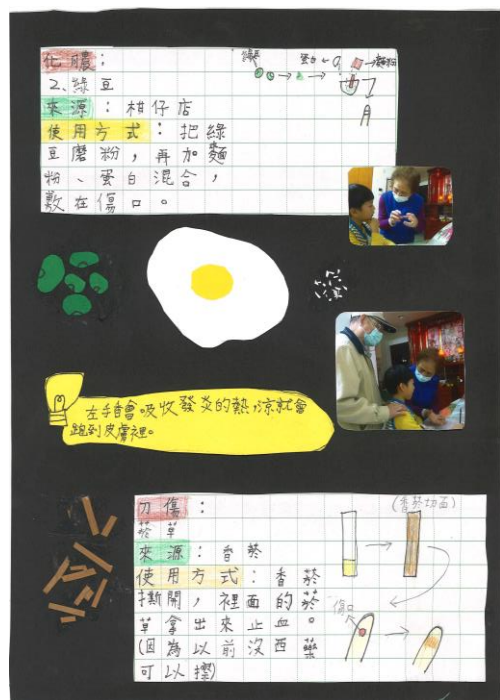 化膿：
2、綠豆
來源：柑仔店
使用方式：把綠
豆磨粉，再加麵
粉、蛋白混合，
敷在傷口。
綠豆
蛋白
麵粉
左手香會吸收發炎的熱，涼就會
跑到皮膚裡。
刀傷：
菸草
來源：香菸
使用方式：香菸
撕開，裡面的菸
草拿出來止血。
(因為以前沒西藥
可以擦)
(香菸切面)
傷口